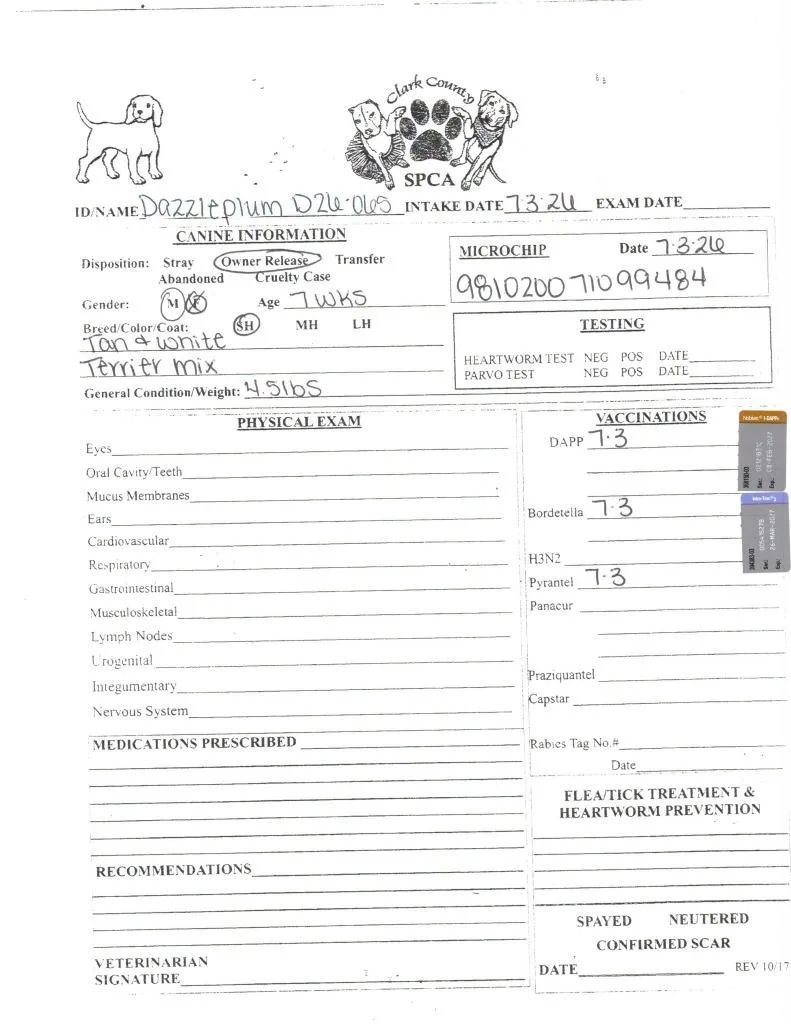 Clark County
SPCA
ID/NAME Dazzleplum D26-065 INTAKE DATE 7-3-26 EXAM DATE
CANINE INFORMATION
Disposition: Stray Owner Release Transfer
Abandoned Cruelty Case
Gender: M F Age 7 wks
Breed/Color/Coat: SH MH LH
Tan & white
Terrier mix
General Condition/Weight: 4.5lbs
MICROCHIP Date 7-3-26
981020071099484
TESTING
HEARTWORM TEST NEG POS DATE
PARVO TEST NEG POS DATE
PHYSICAL EXAM
Eyes
Oral Cavity/Teeth
Mucus Membranes
Ears
Cardiovascular
Respiratory
Gastrointestinal
Musculoskeletal
Lymph Nodes
Urogenital
Integumentary
Nervous System
MEDICATIONS PRESCRIBED
RECOMMENDATIONS
VETERINARIAN
SIGNATURE
VACCINATIONS
DAPP 7-3
Bordetella 7-3
H3N2
Pyrantel 7-3
Panacur
Praziquantel
Capstar
Rabies Tag No.#
Date
FLEA/TICK TREATMENT &
HEARTWORM PREVENTION
SPAYED NEUTERED
CONFIRMED SCAR
DATE
REV 10/17
Ser:
Exp: 08-FEB-2027
Ser:
Exp: 26-MAR-2027